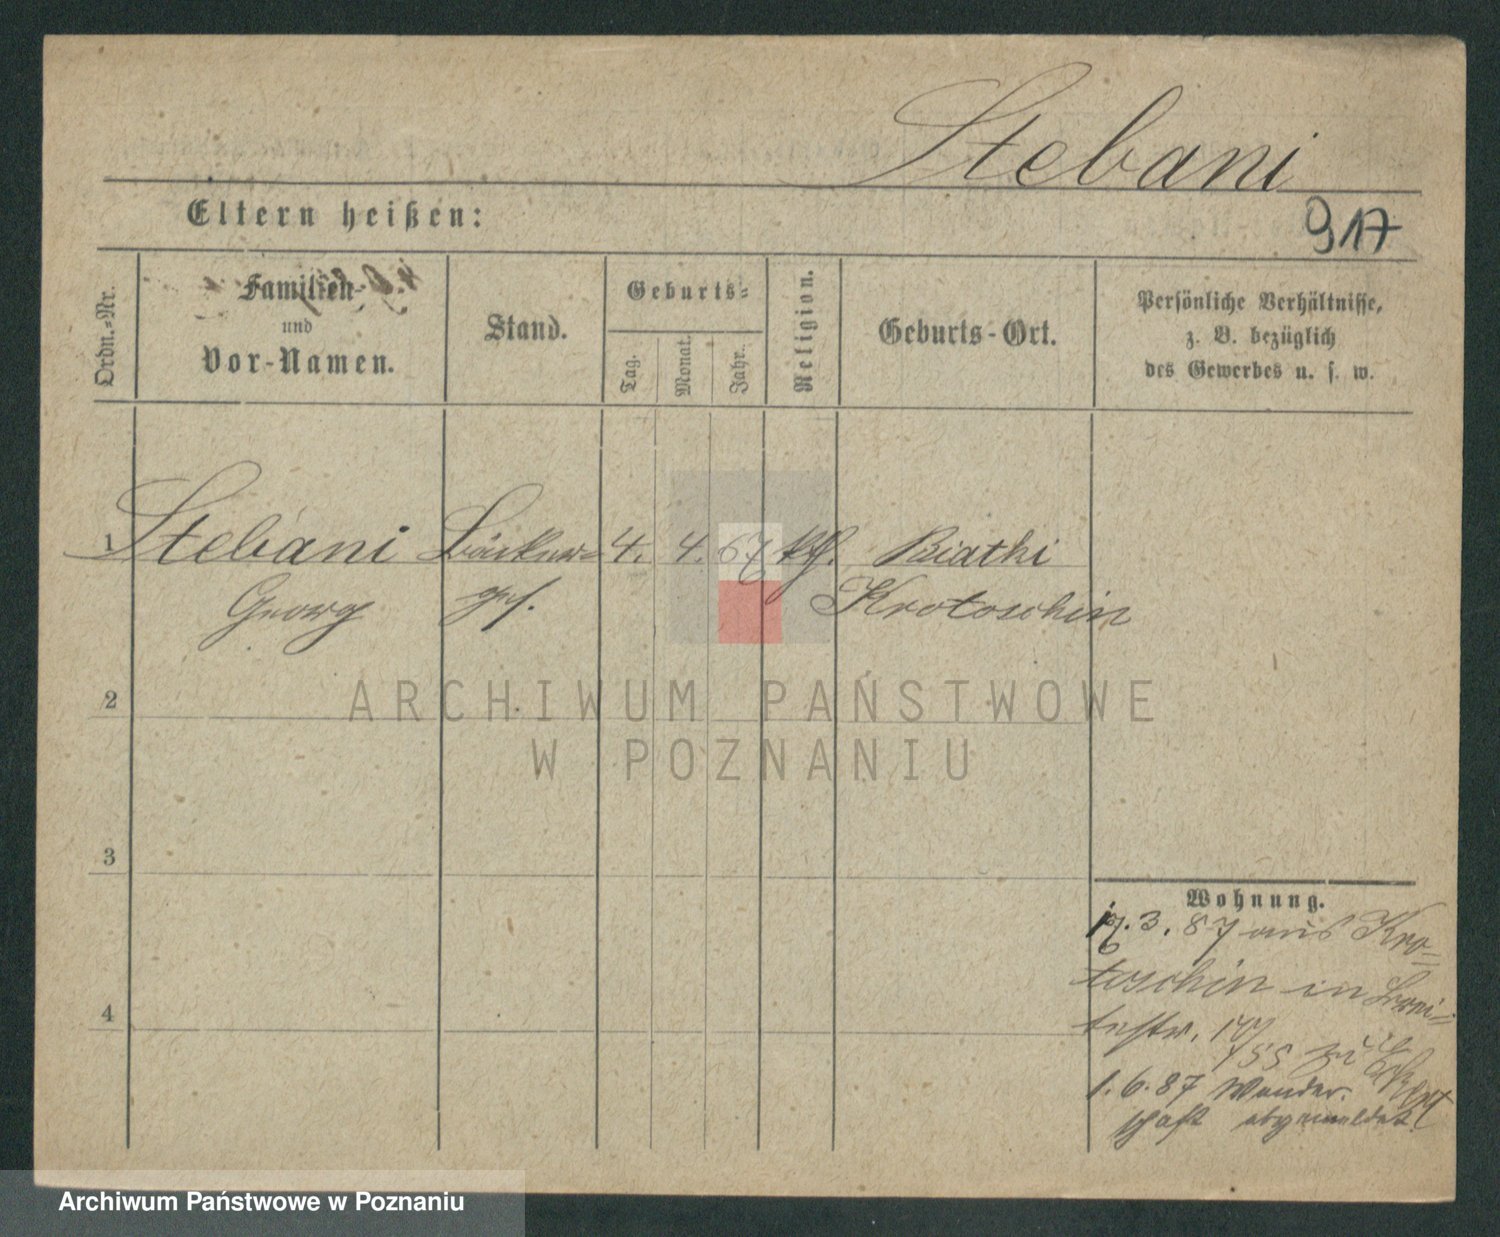 Stebani
Eltern heißen:
917
Ordn.-Nr.
Familien-
und
Vor-Namen.
Stand.
Geburts-
Tag.
Monat.
Jahr.
Religion.
Geburts-Ort.
Persönliche Verhältnisse,
z. B. bezüglich
des Gewerbes u. s. w.
1 Stebani Bäcker- 4. 4. 67 kth.
Georg ges. Krotoschin
ARCHIWUM PAŃSTWOWE
W POZNANIU
2
3
4
Wohnung.
17. 3. 87 aus Kro-
toschin in Brei-
testr.
1. 6. 87 Wander-
schaft abgemeldet
Archiwum Państwowe w Poznaniu